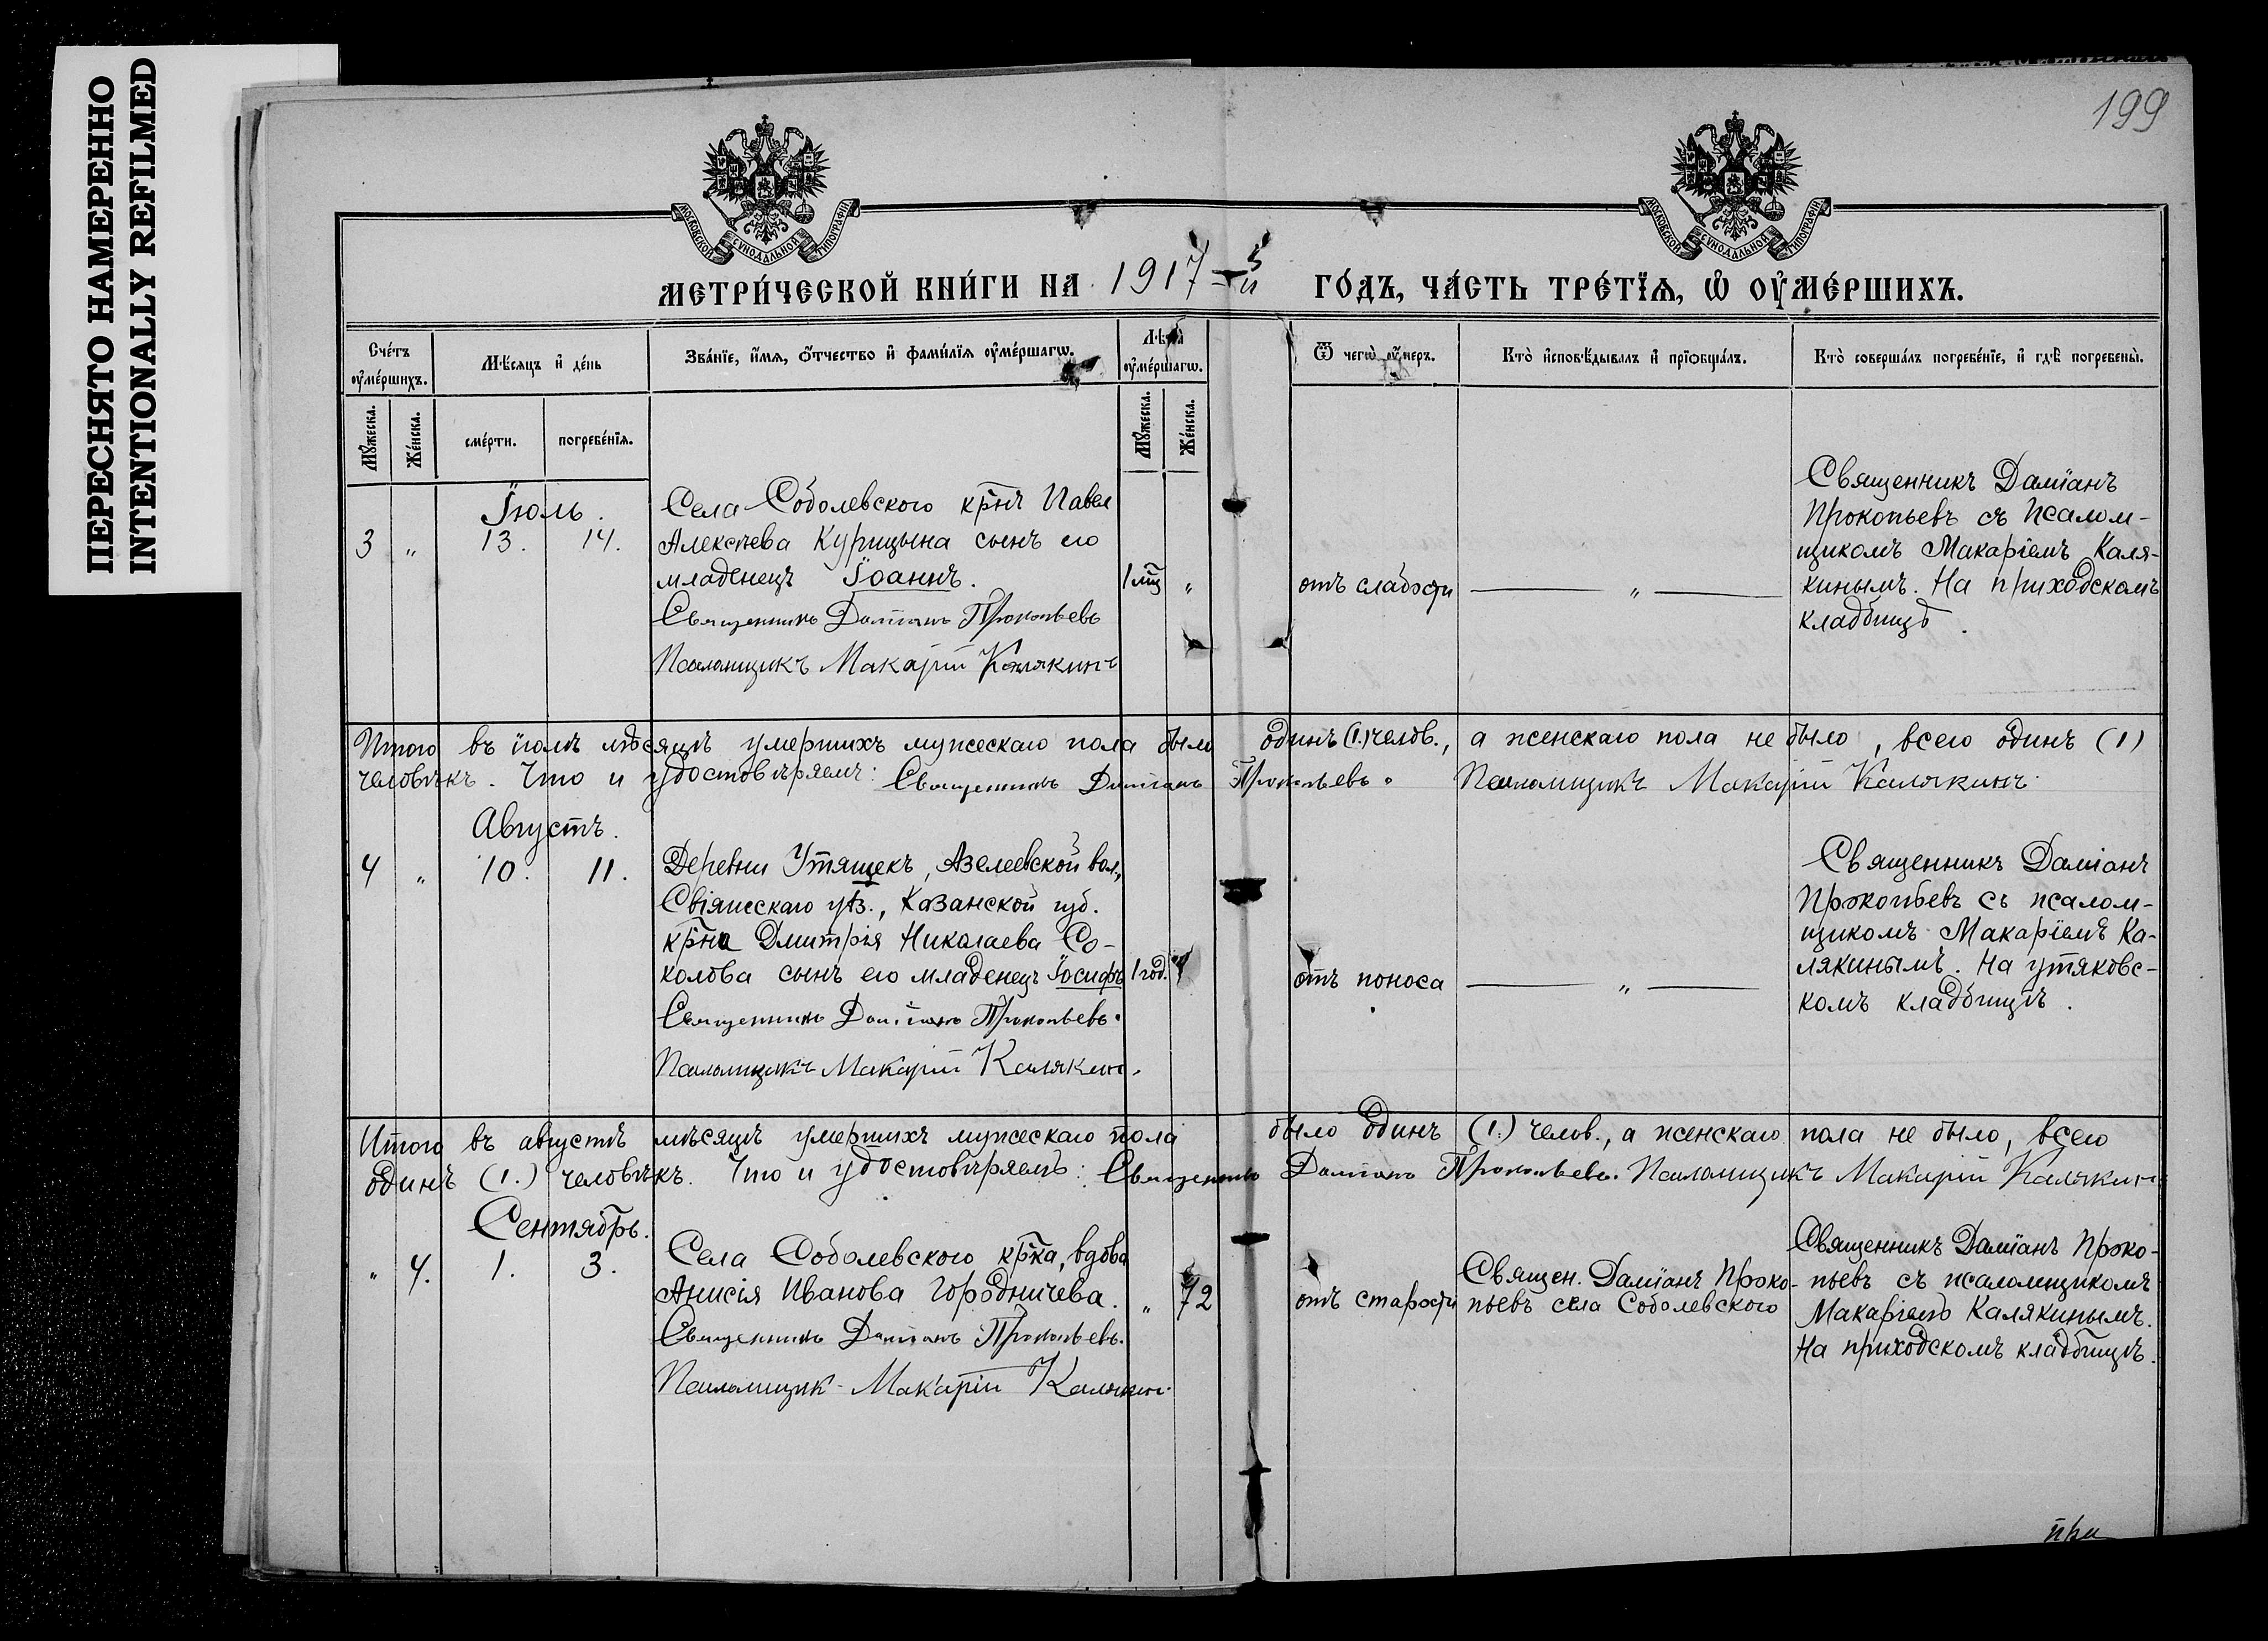 ПЕРЕСНЯТО НАМЕРЕННО
INTENTIONALLY REFILMED
199
МОСКОВСКОЙ СѴНОДАЛЬНОЙ ТИПОГРАФІИ
МОСКОВСКОЙ СѴНОДАЛЬНОЙ ТИПОГРАФІИ
МЕТРИ́ЧЕСКОЙ КНИ́ГИ НА 1917-й ГО́ДЪ, ЧА́СТЬ ТРЕ́ТЇѦ, Ѡ҆ ОУ҆МЕ́РШИХЪ.
Сче́тъ оу҆ме́ршихъ.
Мѣ́сяцъ и҆ де́нь
Зва́нїе, и҆́мѧ, ѻ҆́тчество и҆ фами́лїѧ оу҆ме́ршагѡ.
Лѣта оу҆ме́ршагѡ.
Ѿ чегѡ̀ оу҆́меръ.
Кто̀ и҆сповѣ́дывалъ и҆ прїѡбща́лъ.
Кто̀ соверша́лъ погребе́нїе, и҆ гдѣ̀ погребены̀.
Мꙋ́жеска.
Же́нска.
сме́рти.
погребе́нїѧ.
Мꙋ́жеска.
Же́нска.
Іюль.
3 " 13. 14.
Села Соболевского кр̃нъ Павел
Алексѣева Курицына сынъ его
младенецъ Іоаннъ.
Священникъ Даміанъ Прокопьевъ
Псаломщикъ Макарій Калякинъ
1 мц̃ "
отъ слабости
"
Священникъ Даміанъ
Прокопьевъ съ псалом-
щикомъ Макаріемъ Каля-
кинымъ. На приходскомъ
кладбищѣ.
Итого въ іюлѣ мѣсяцѣ умершихъ мужескаго пола было одинъ (1.) челов., а женскаго пола не было, всего одинъ (1)
человѣкъ. Что и удостовѣряемъ: Священникъ Даміанъ Прокопьевъ. Псаломщикъ Макарій Калякинъ.
Августъ.
4 " 10. 11.
Деревни Утящекъ, Азелеевской вол.,
Свіяжскаго уѣз., Казанской губ.
кр̃на Дмитрія Николаева Со-
колова сынъ его младенецъ Іосифъ
Священникъ Даміанъ Прокопьевъ.
Псаломщикъ Макарій Калякин.
1 год. "
отъ поноса
"
Священникъ Даміанъ
Прокопьевъ съ псалом-
щикомъ Макаріемъ Ка-
лякинымъ. На утяковс-
комъ кладбищѣ.
Итого въ августѣ мѣсяцѣ умершихъ мужескаго пола было одинъ (1.) челов., а женскаго пола не было, всего
одинъ (1.) человѣкъ. Что и удостовѣряемъ: Священникъ Даміанъ Прокопьевъ. Псаломщикъ Макарій Калякинъ
Сентябрь.
" 4. 1. 3.
Села Соболевского кр̃ка, вдова
Анисія Иванова Городничева.
Священникъ Даміанъ Прокопьевъ.
Псаломщик Макарій Калякин.
" 72
отъ старости
Священ. Даміанъ Проко-
пьевъ села Соболевского
Священникъ Даміанъ Проко-
пьевъ съ псаломщикомъ
Макаріемъ Калякинымъ.
На приходскомъ кладбищѣ.
при